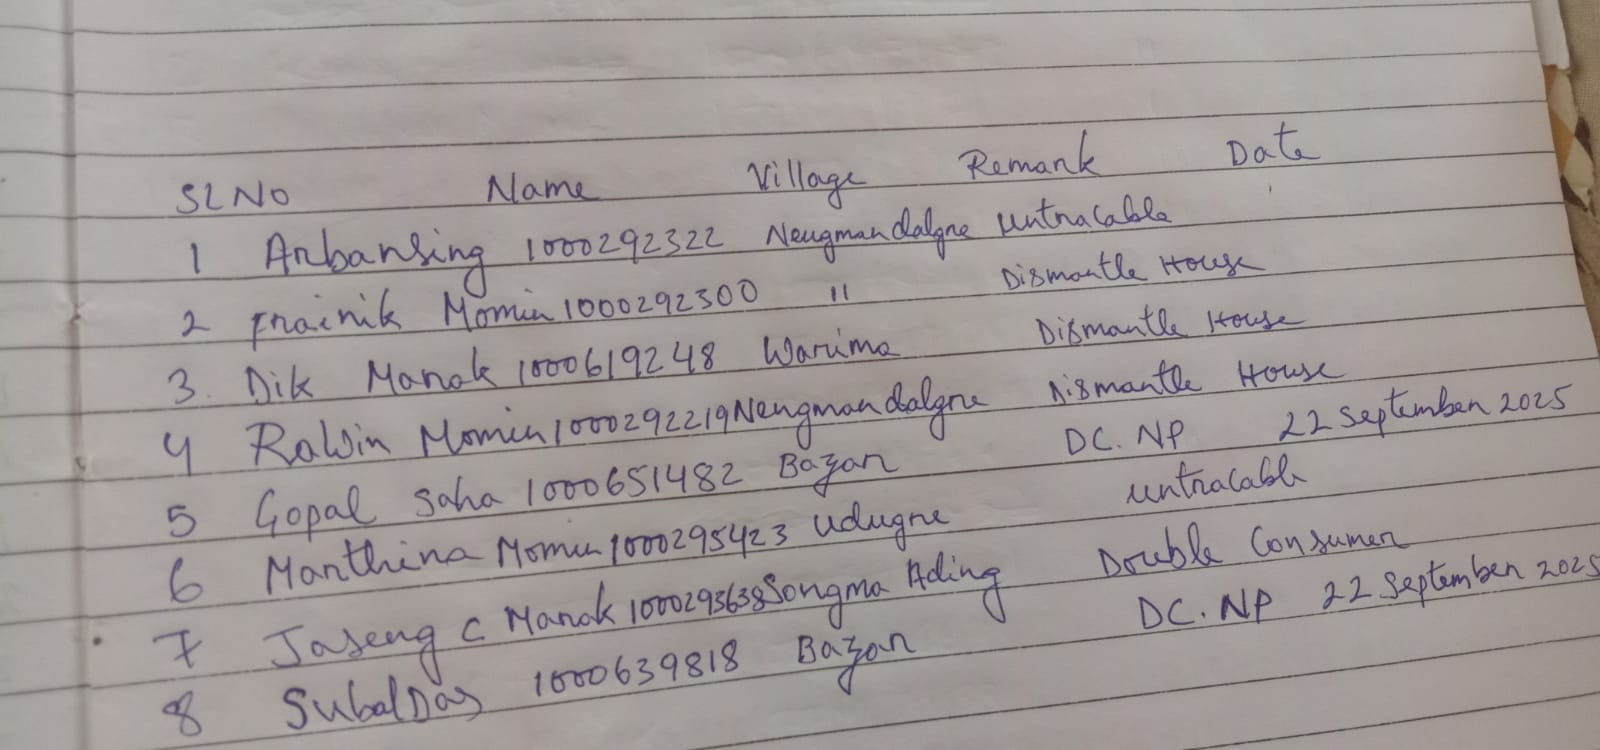 SL NO Name Village Remark Date
1 Arbansing 1000292322 Nengmandalgre untracable
2 frainik Momin 1000292300 " Dismantle House
3. Dik Marak 1000619248 Warima Dismantle House
4 Rawin Momin 1000292219 Nengmandalgre Dismantle House
5 Gopal Saha 1000651482 Bazar DC. NP 22 September 2025
6 Marthina Momin 1000295423 Udugre untracable
7 Jaseng C Marak 1000293638 Songma Ading Double Consumer
8 Subal Das 1000639818 Bazar DC. NP 22 September 2025